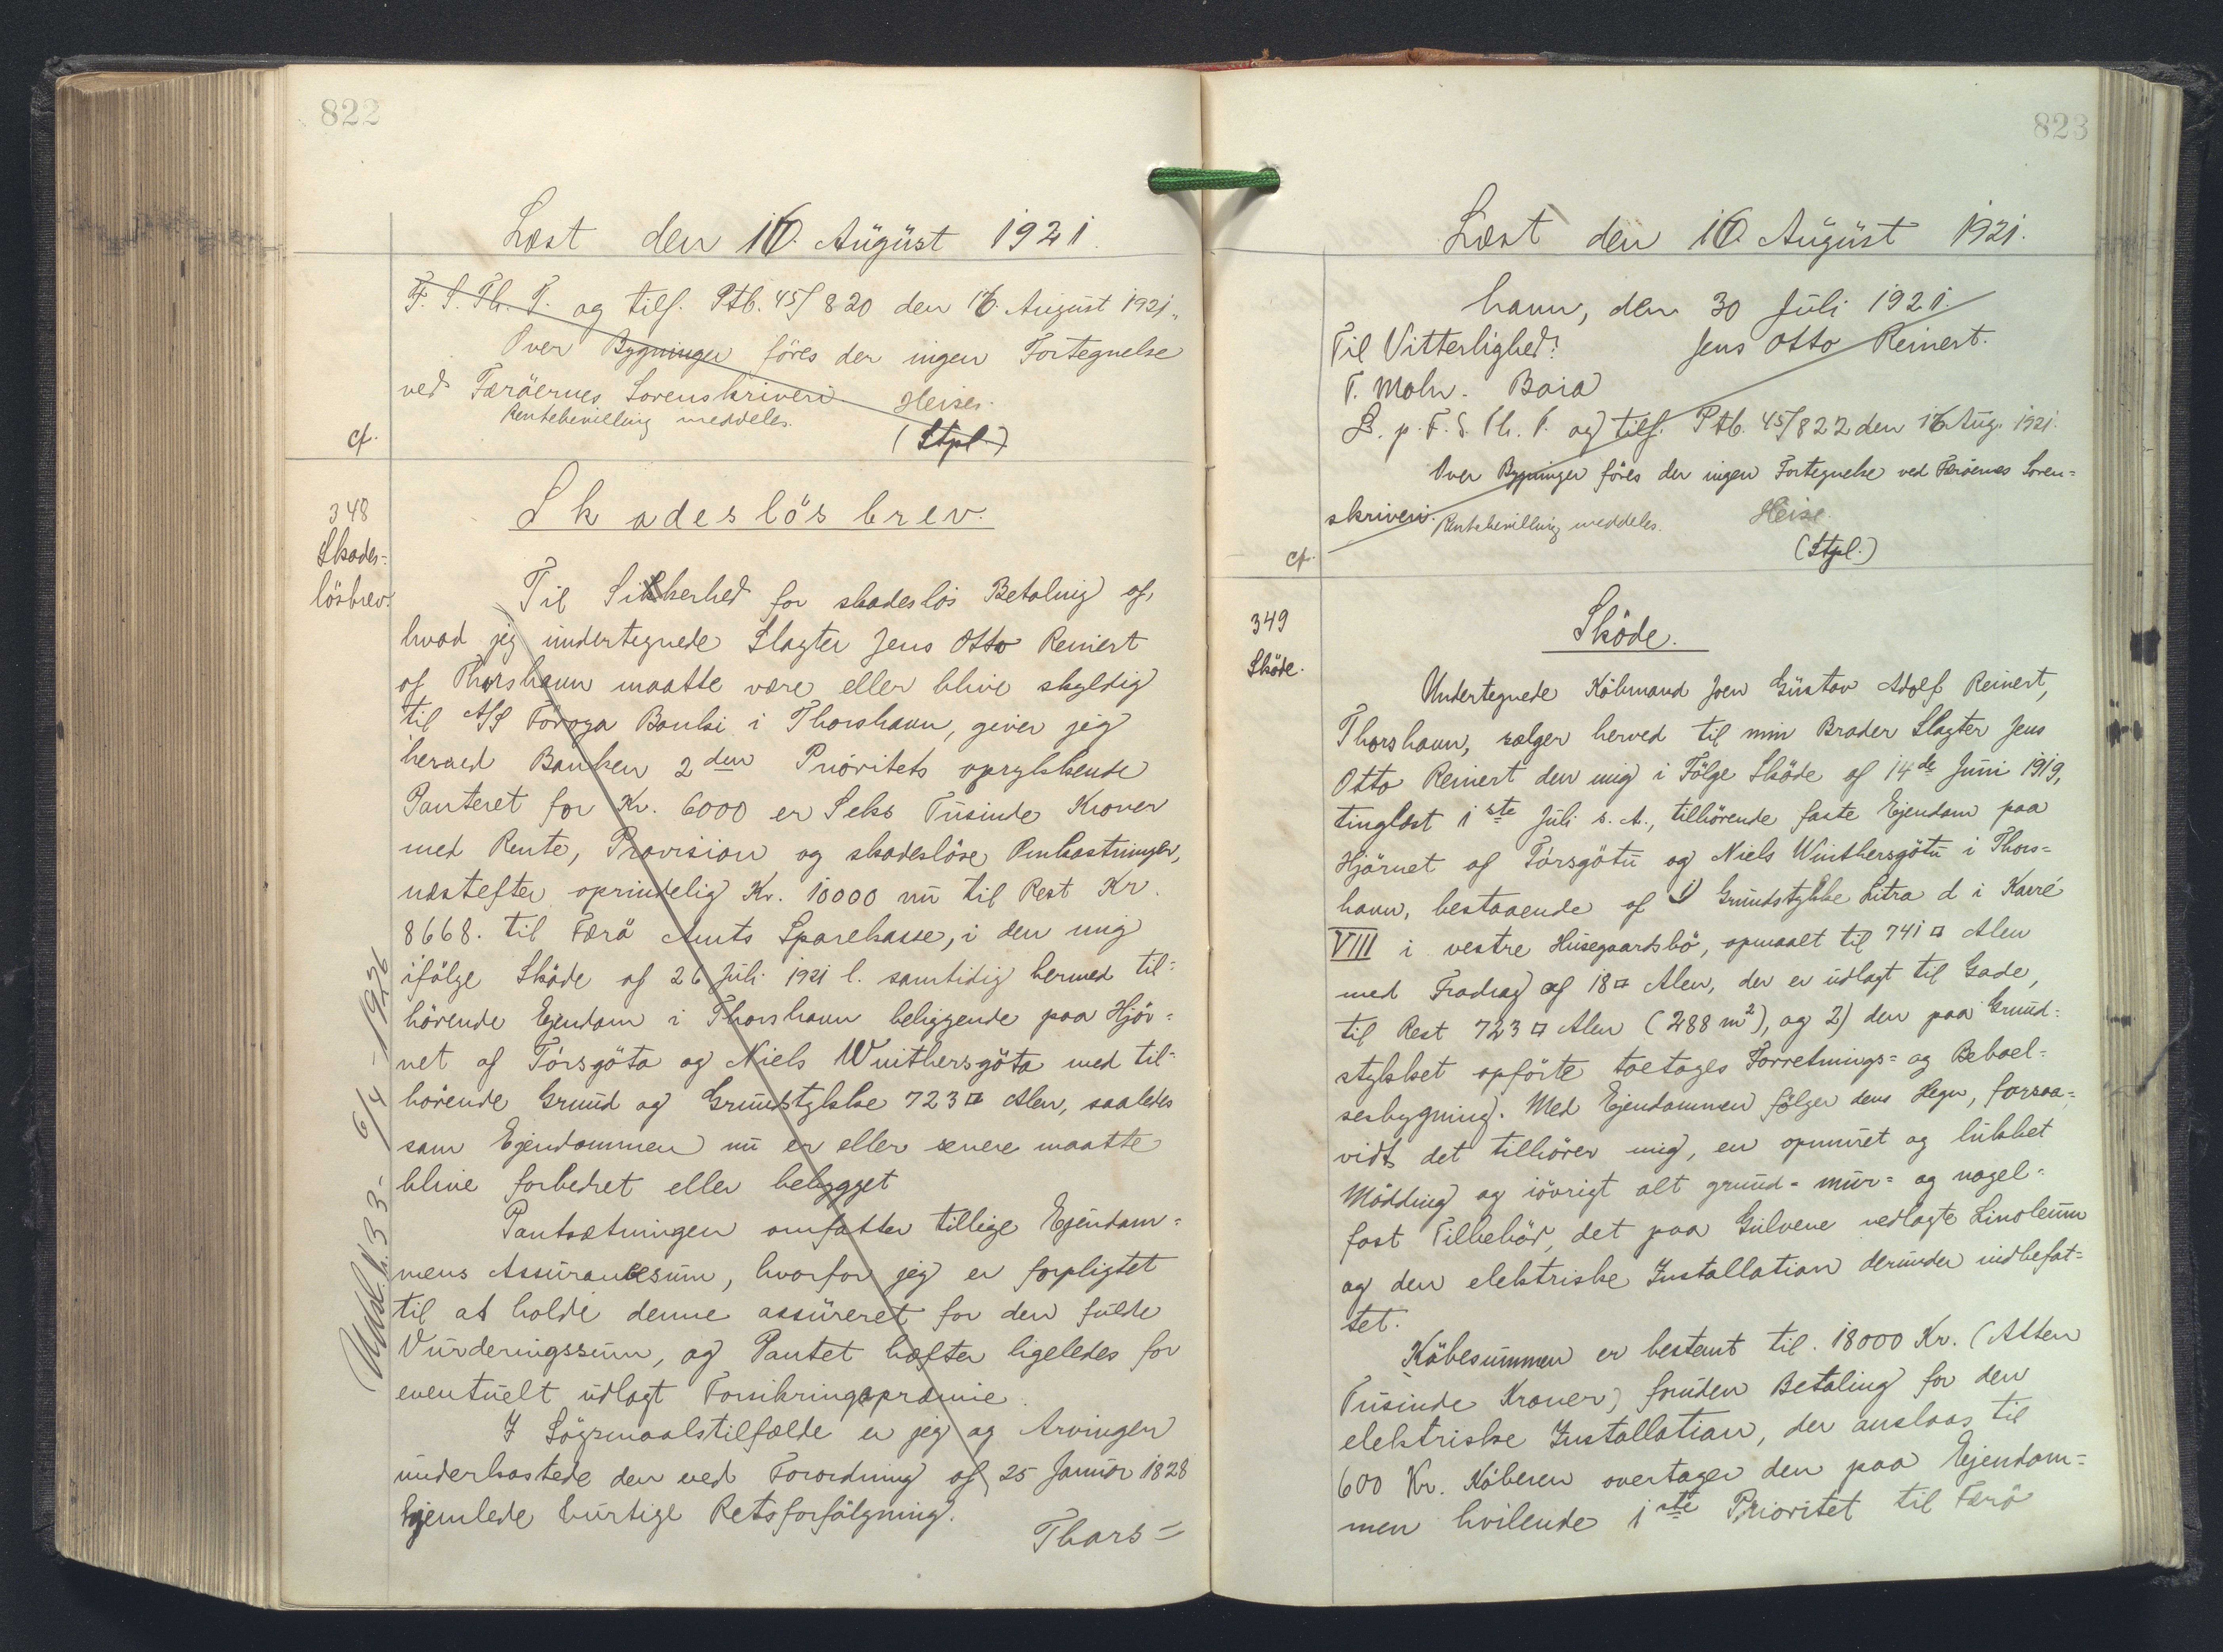 822
Læst den 16. August 1921.
F. S. Th. P. og tilf. Ptb. 45/820 den 16. August 1921.
Over Bygninger föres der ingen Fortegnelse
ved Færöernes Sorenskriveri. Heise.
Rentebevilling meddeles.
cf. (Stpl.)
348
Skades-
lösbrev.
Skadeslösbrev.
Til Sikkerhed for skadeslös Betaling af,
hvad jeg undertegnede Slagter Jens Otto Reinert
af Thorshavn maatte være eller blive skyldig
til A/S Föroya Banki i Thorshavn, giver jeg
herved Banken 2den Prioritets oprykkende
Panteret for Kr. 6000 er Seks Tusinde Kroner
med Rente, Provision og skadeslöse Omkostninger,
næstefter oprindelig Kr. 10000 nu til Rest Kr.
8668. til Færö Amts Sparekasse, i den mig
ifölge Sköde af 26 Juli 1921 l. samtidig hermed til-
hörende Ejendom i Thorshavn beliggende paa Hjör-
net af Tórsgöta og Niels Winthersgöta med til-
hörende Grund og Grundstykke 723 □ Alen, saaledes
som Ejendommen nu er eller senere maatte
blive forbedret eller bebygget
Pantsætningen omfatter tillige Ejendom-
mens Assurancesum, hvorfor jeg er forpligtet
til at holde denne assureret for den fulde
Vurderingssum, og Pantet hæfter ligeledes for
eventuelt udlagt Forsikringspræmie.
I Sögsmaalstilfælde er jeg og Arvinger
underkastede den ved Forordning af 25 Januar 1828
hjemlede hurtige Retsforfölgning.
Thors-
Udsl. h. 33- 6/4 - 1926
823
Læst den 16. August 1921.
havn, den 30 Juli 1921.
Til Vitterlighed: Jens Otto Reinert.
T. Mohr. Baia
B. p. F. S. Th. P. og tilf. Ptb. 45/822 den 16 Aug. 1921.
Over Bygninger föres der ingen Fortegnelse ved Færöernes Soren-
skriveri. Rentebevilling meddeles. Heise.
cf. (Stpl.)
349
Sköde.
Sköde.
Undertegnede Köbmand Joen Gustav Adolf Reinert,
Thorshavn, sælger herved til min Broder Slagter Jens
Otto Reinert den mig i Fölge Sköde af 14de Juni 1919,
tinglæst 1ste Juli s. A., tilhörende faste Ejendom paa
Hjörnet af Tórsgötu og Niels Winthersgötu i Thors-
havn, bestaaende af 1) Grundstykke Litra d i Karré
VIII i vestre Husegaardsbö, opmaalt til 741 □ Alen
med Fradrag af 18 □ Alen, der er udlagt til Gade,
til Rest 723 □ Alen (288 m2), og 2) den paa Grund-
stykket opförte toetages Forretnings- og Beboel-
sesbygning. Med Ejendommen fölger dens Hegn, forsaa-
vidt det tilhörer mig, en opmuret og lukket
Mödding og iövrigt alt grund- mur- og nagel-
fast Tilbehör, det paa Gulvene nedlagte Linoleum
og den elektriske Installation derunder indbefat-
tet.
Köbesummen er bestemt til 18000 Kr. (Atten
Tusinde Kroner) foruden Betaling for den
elektriske Installation, der anslaas til
600 Kr. Köberen overtager den paa Ejendom-
men hvilende 1ste Prioritet til Færö